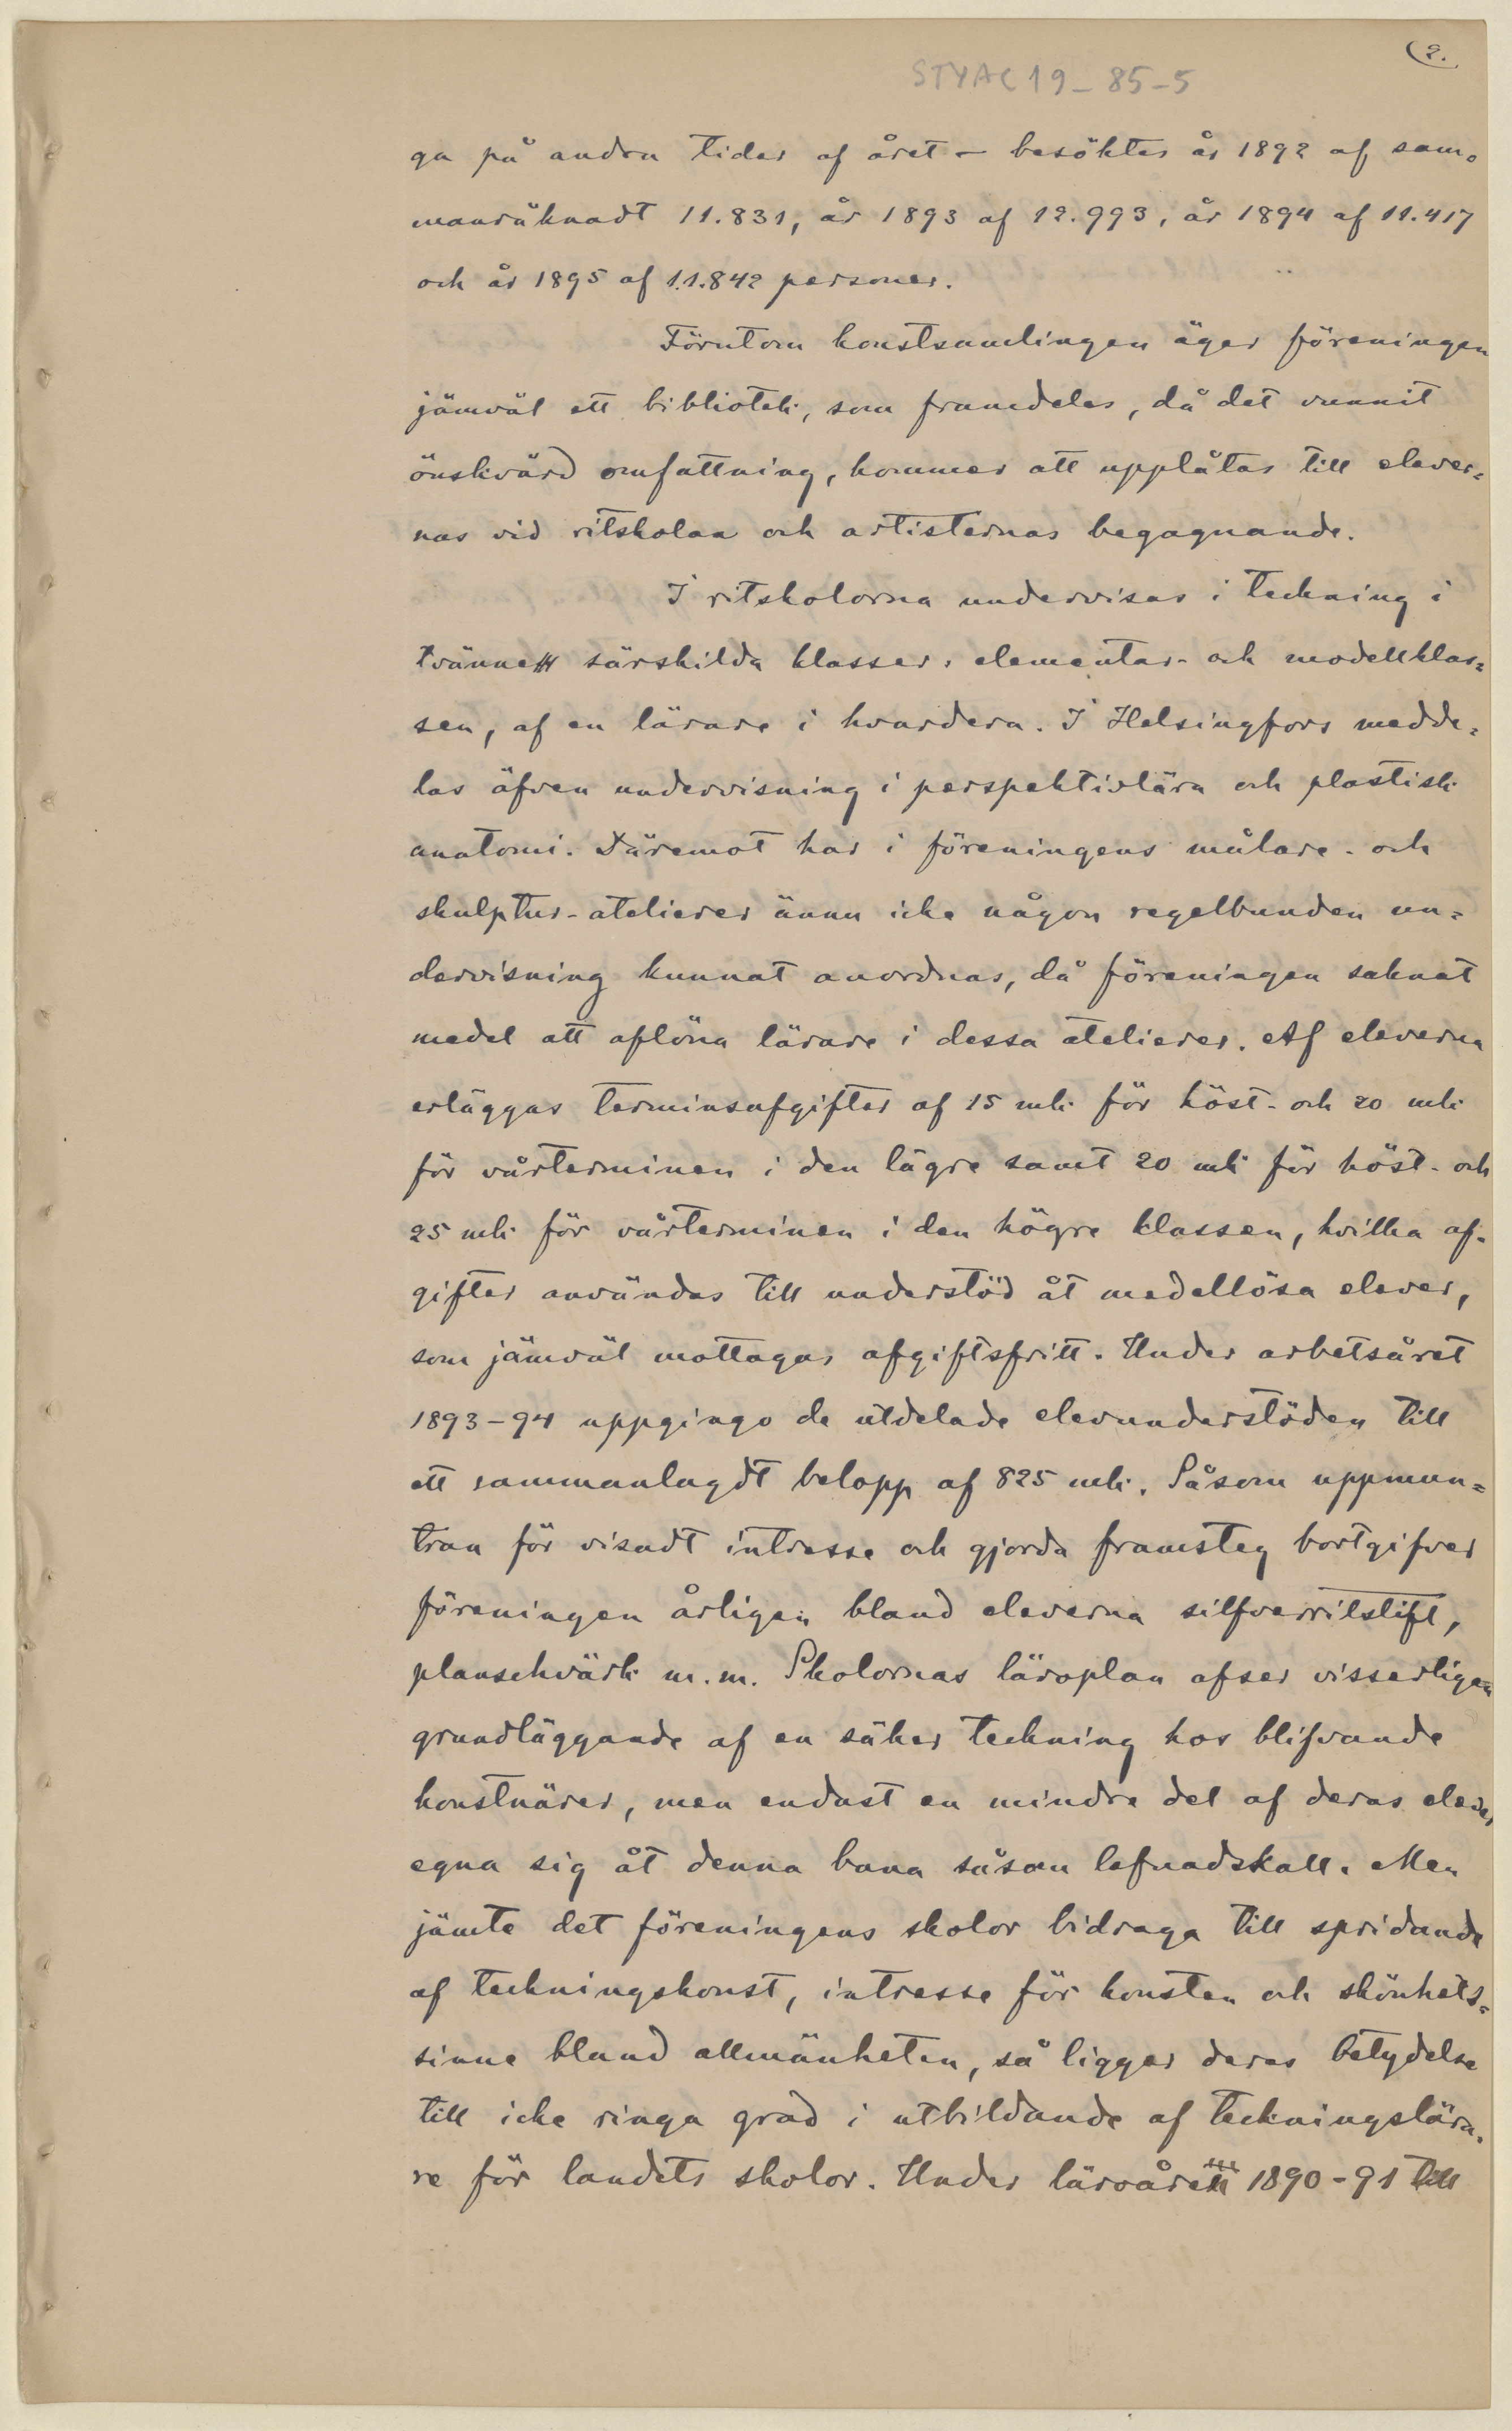 (2.
STYAC 19-85-5
ga på andra tider af året - besöktes år 1892 af sam-
manräknadt 11.831, år 1893 af 12.993, år 1894 af 11.417
och år 1895 af 11.842 personer.
Förutom konstsamlingen äger föreningen
jämväl ett bibliotek, som framdeles, då det vunnit
önskvärd omfattning, kommer att upplåtas till elever-
nas vid ritskolan och artisternas begagnande.
I ritskolorna undervisas i teckning i
tvänne särskilda klasser, elementar- och modellklas-
sen, af en lärare i hvardera. I Helsingfors medde-
las äfven undervisning i perspektivlära och plastisk
anatomi. Däremot har i föreningens målare- och
skulptur-atelierer ännu icke någon regelbunden un-
dervisning kunnat anordnas, då föreningen saknat
medel att aflöna lärare i dessa atelierer. Af eleverna
erläggas terminsafgifter af 15 mk för höst- och 20 mk
för vårterminen i den lägre samt 20 mk för höst- och
25 mk för vårterminen i den högre klassen, hvilka af-
gifter användas till understöd åt medellösa elever,
som jämväl mottagas afgiftsfritt. Under arbetsåret
1893-94 uppgingo de utdelade elevunderstöden till
ett sammanlagdt belopp af 825 mk. Såsom uppmun-
tran för visadt intresse och gjorda framsteg bortgifver
föreningen årligen bland eleverna silfverritstift,
planschvärk m.m. Skolornas läroplan afser visserligen
grundläggande af en säker teckning hos blifvande
konstnärer, men endast en mindre del af deras elever
egna sig åt denna bana såsom lefnadskall. Men
jämte det föreningens skolor bidraga till spridande
af teckningskonst, intresse för konsten och skönhets-
sinne bland allmänheten, så ligger deras betydelse
till icke ringa grad i utbildande af teckningslära-
re för landets skolor. Under läroåren 1890-91 till